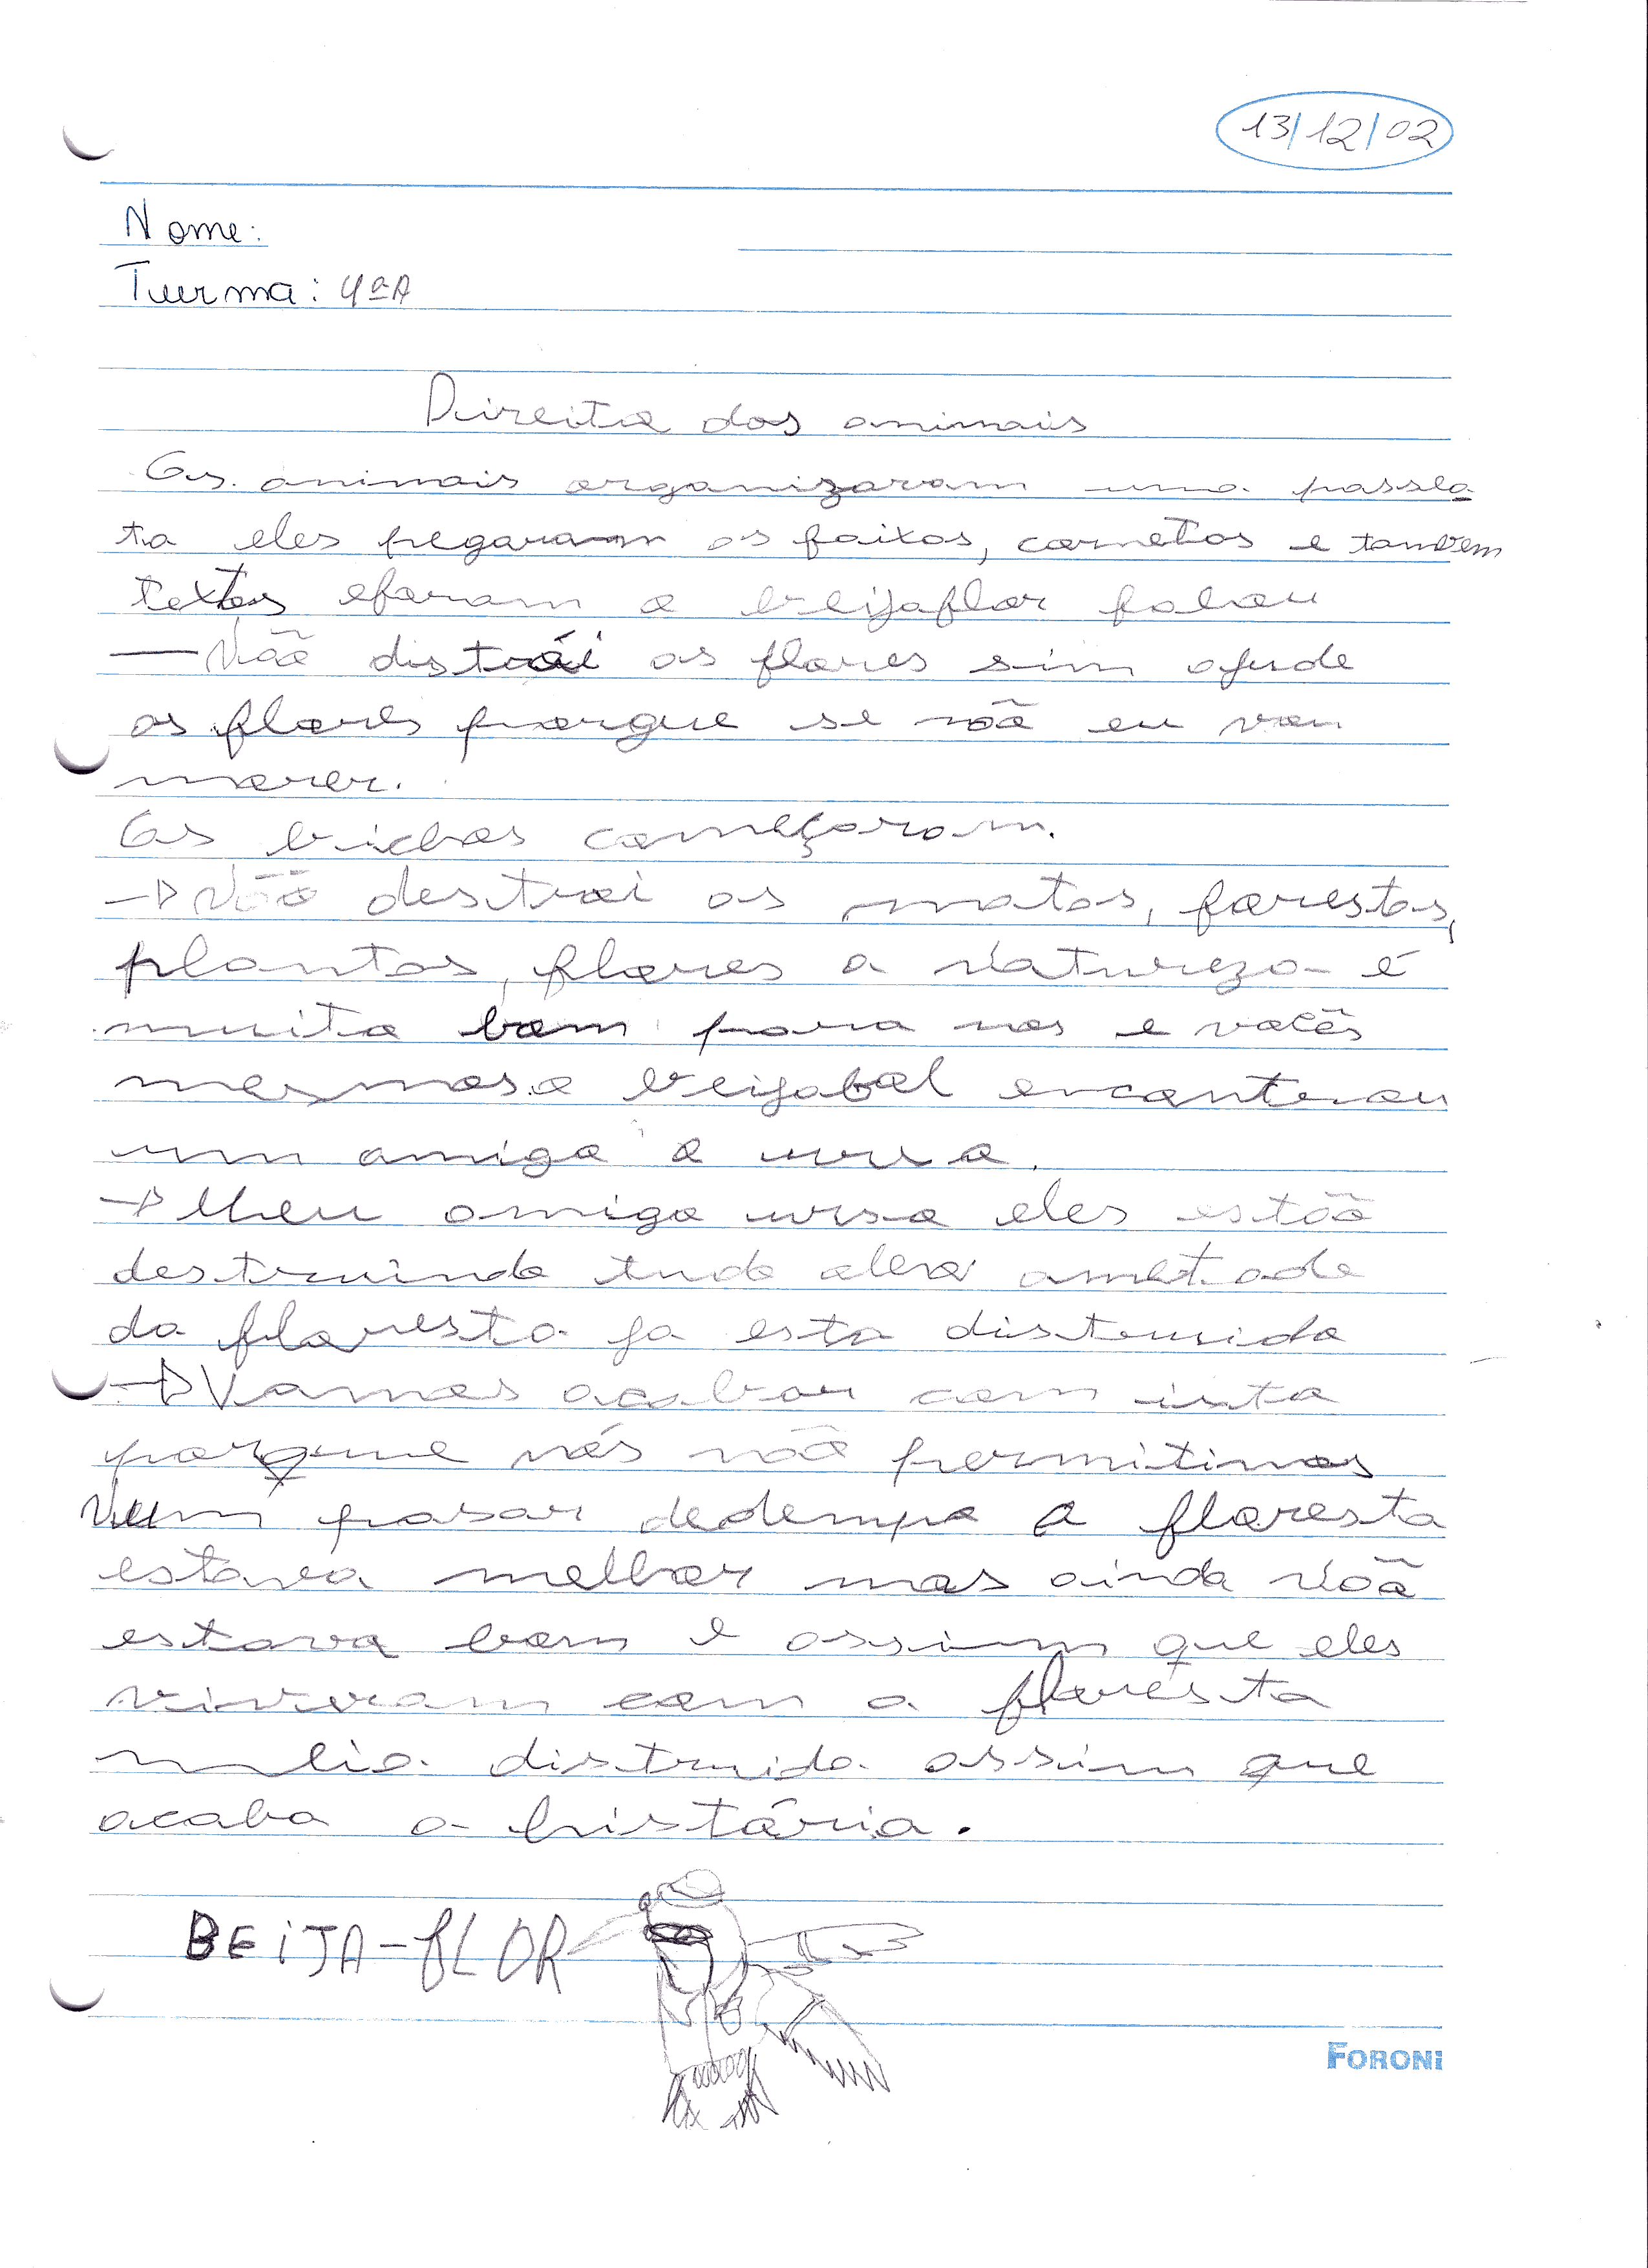 13/12/02
Nome:
Turma: 4ªA
Direito dos animais
Os animais organizaram uma passea
ta eles pegaram as faixas, cornetas e tambem
textos eforam o beijaflor falou
— Não distrói as flores sim ajude
as flores porque se não eu vou
morer.
Os bichos começaram.
→ Não destroi as matas, forestas,
plantas, flores a Natureza é
muito bom para nos e vocês
mesmos.o beijabol encontrou
um amigo o urso.
→ Meu amigo urso eles estão
destruindo tudo ametade
da floresta ja esta distruida
→ Vamos acabar com isto
porque nós não permitimos
Num pasar dedempo a floresta
estava melhor mas ainda Não
estava bom e assim que eles
viveram com a floresta
meia distruida assim que
acaba a história.
BEiJA-fLOR
FORONI